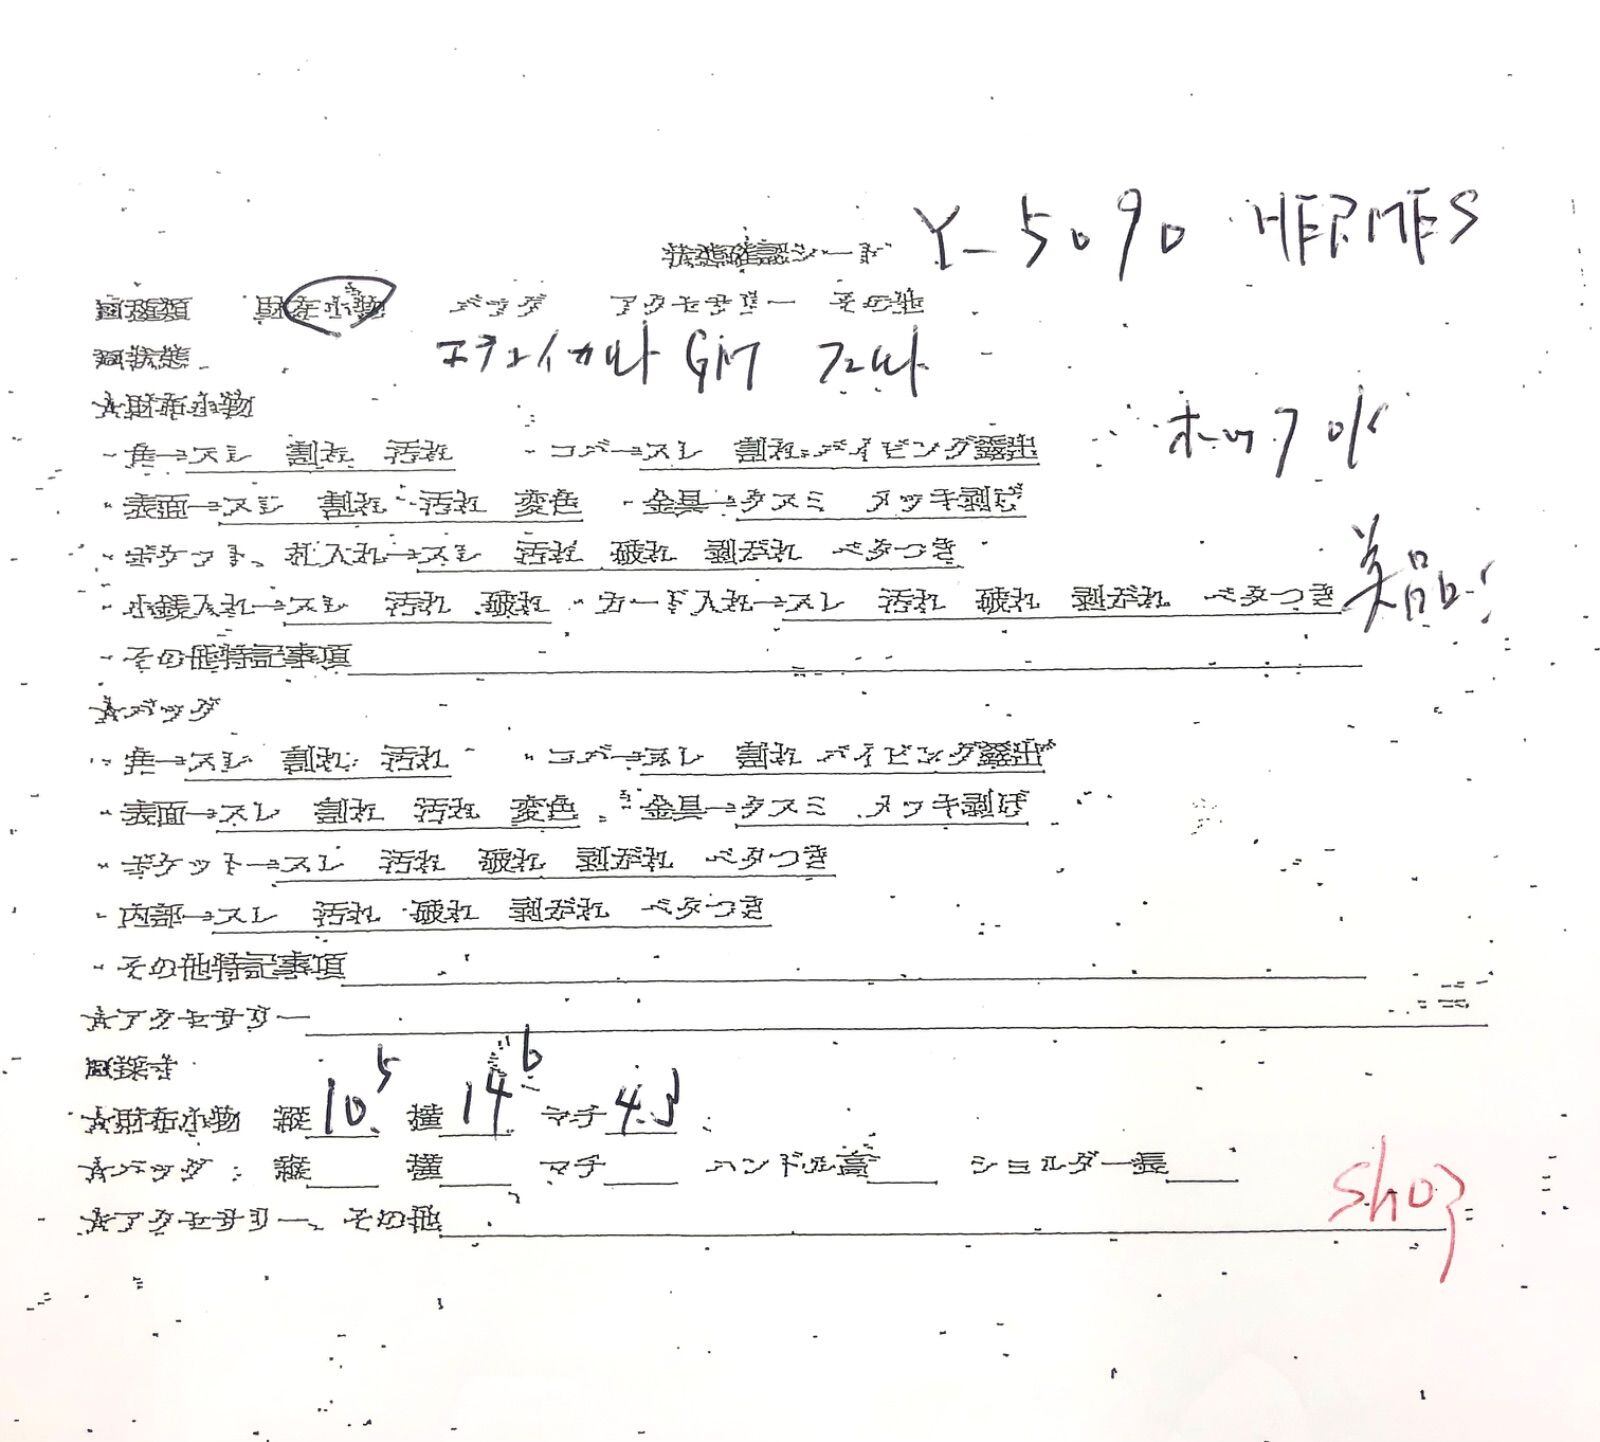 状態確認シート Y-5090 HERMES
□種類 財布小物 バッグ アクセサリー その他
□状態 エテュイカット GM フェルト
★財布小物
・角→スレ 割れ 汚れ ・コバ→スレ 割れ パイピング露出 ホック OK
・表面→スレ 割れ 汚れ 変色 ・金具→クスミ メッキ剥げ
・ポケット、札入れ→スレ 汚れ 破れ 剥がれ ベタつき
・小銭入れ→スレ 汚れ 破れ ・カード入れ→スレ 汚れ 破れ 剥がれ ベタつき 美品!
・その他特記事項
★バッグ
・角→スレ 割れ 汚れ ・コバ→スレ 割れ パイピング露出
・表面→スレ 割れ 汚れ 変色 ・金具→クスミ メッキ剥げ
・ポケット→スレ 汚れ 破れ 剥がれ ベタつき
・内部→スレ 汚れ 破れ 剥がれ ベタつき
・その他特記事項
★アクセサリー
□採寸
★財布小物 縦10.5 横14.6 マチ4.3
★バッグ 縦 横 マチ ハンドル高 ショルダー長
★アクセサリー、その他